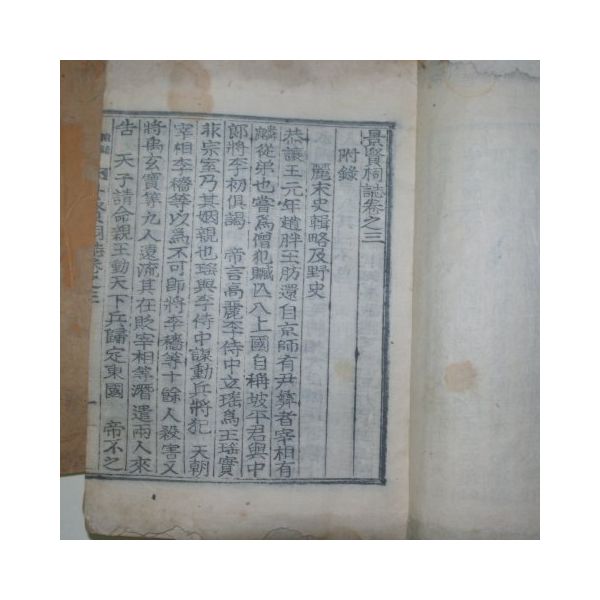 景賢祠誌卷之三
附錄
麗末史輯略及野史
恭讓王元年趙胖王昉還自京師有尹彛者宰相有
麟從弟也嘗爲僧犯贓亾入上國自稱坡平君與中
郞將李初俱謁 帝言高麗李侍中立瑤爲王瑤實
非宗室乃其姻親也瑤與李侍中謀動兵將犯 天朝
宰相李穡等以爲不可卽將李穡等十餘人殺害又
將禹玄寶等九人遠流其在貶宰相等潛遣兩人來
告 天子請命親王動天下兵歸定東國 帝不之